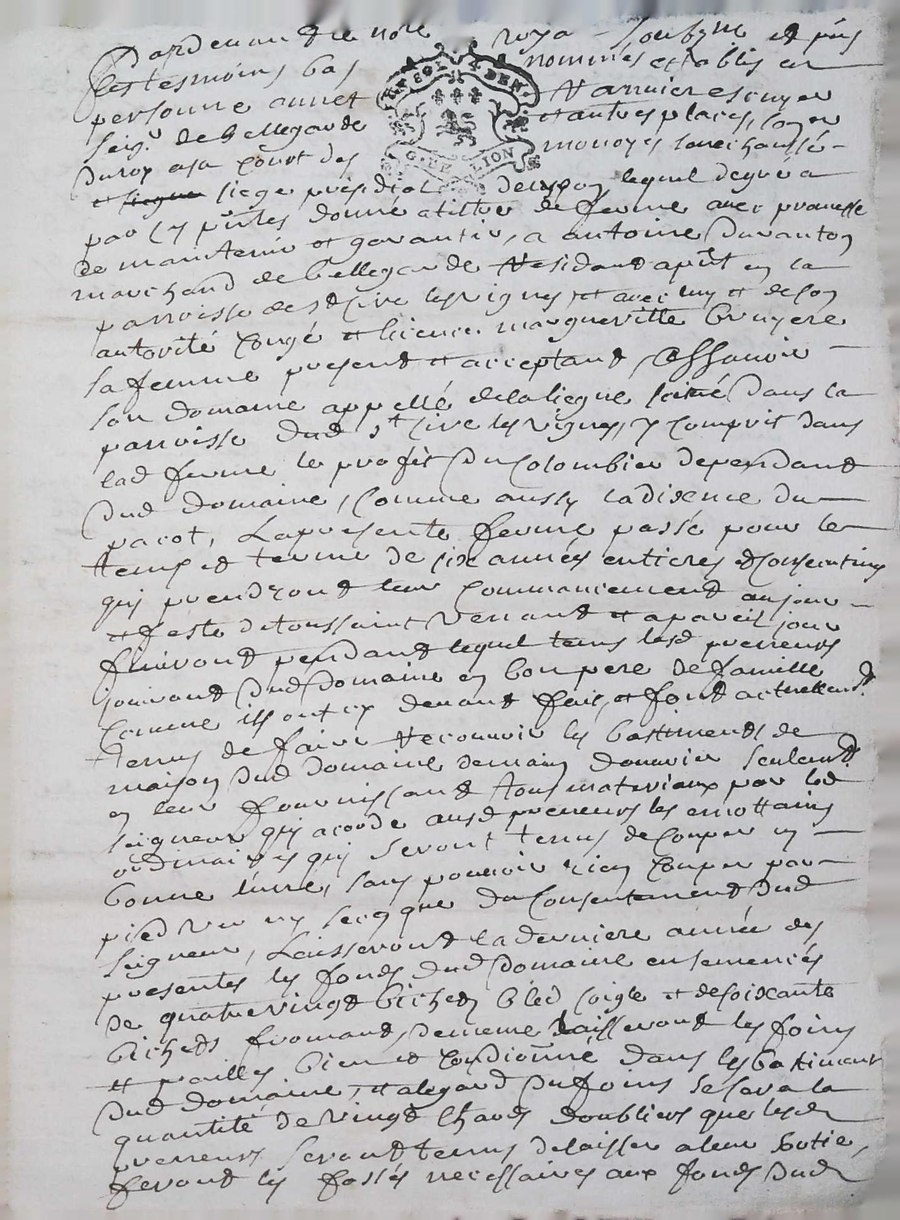 Pardevant le no.re roya. soubsigné et prés
les tesmoins bas nommés establis en
EN SOL 4 DEN
personne annet Harnier escuyer
seig.r de Bellegarde et autres places,
G. DE LION
du roy en sa court des monoyes senechaussé
et siege presidial de Lyon lequel de gré a
par ces p.ntes donné a tiltre de ferme avec promesse
de maintenir et garantir, a antoine Duranton
marchand de Bellegarde Residant a p.nt en la
parroisse de S.t Cire les vignes et avec luy et de son
autorité Congé et licence margueritte bruyere
sa femme present et acceptant, assavoir
son domaine appellé de la liegue scitué dans la
parroisse dud S.t Cire les vignes, y compris dans
lad ferme le profit du Colombier dependant
dud domaine, Comme aussy la dixence du
pacot, La presente ferme passé pour le
temps et terme de six années entieres et consecutives
qui prendront leur Commancement au jour
et feste de toussaint Venant et a pareil jour
finiront pendant lequel tems lesd preneurs
jouiront dud domaine en bon pere de famille
Comme ils ont cy devant fait, et font actuellem.t
tenus de faire Recouvrir les bastiments de
maison dud domaine de main d'ouvrier seulem.t
en leur fournissant tous materiaux par led
seigneur qui acorde ausd preneurs les emottains
ordinaires qui seront tenus de Couper en
bonne lune, sans pouvoir rien Couper par
pied vif ny secq que du Consentement dud
seigneur, Laisseront la derniere année des
presentes les fonds dud Domaine ensemencés
de quatre vingt bichets bled soigle et de soixante
bichets fromant, de meme laisseront les foins
et pailles bien et Condionné dans les bastiments
dud domaine, et a legard du foins se sera la
quantité de vingt Chards doubliers que lesd
preneurs seront tenus de laisser a leur sortie,
feront les fossés necessaires aux fonds dud